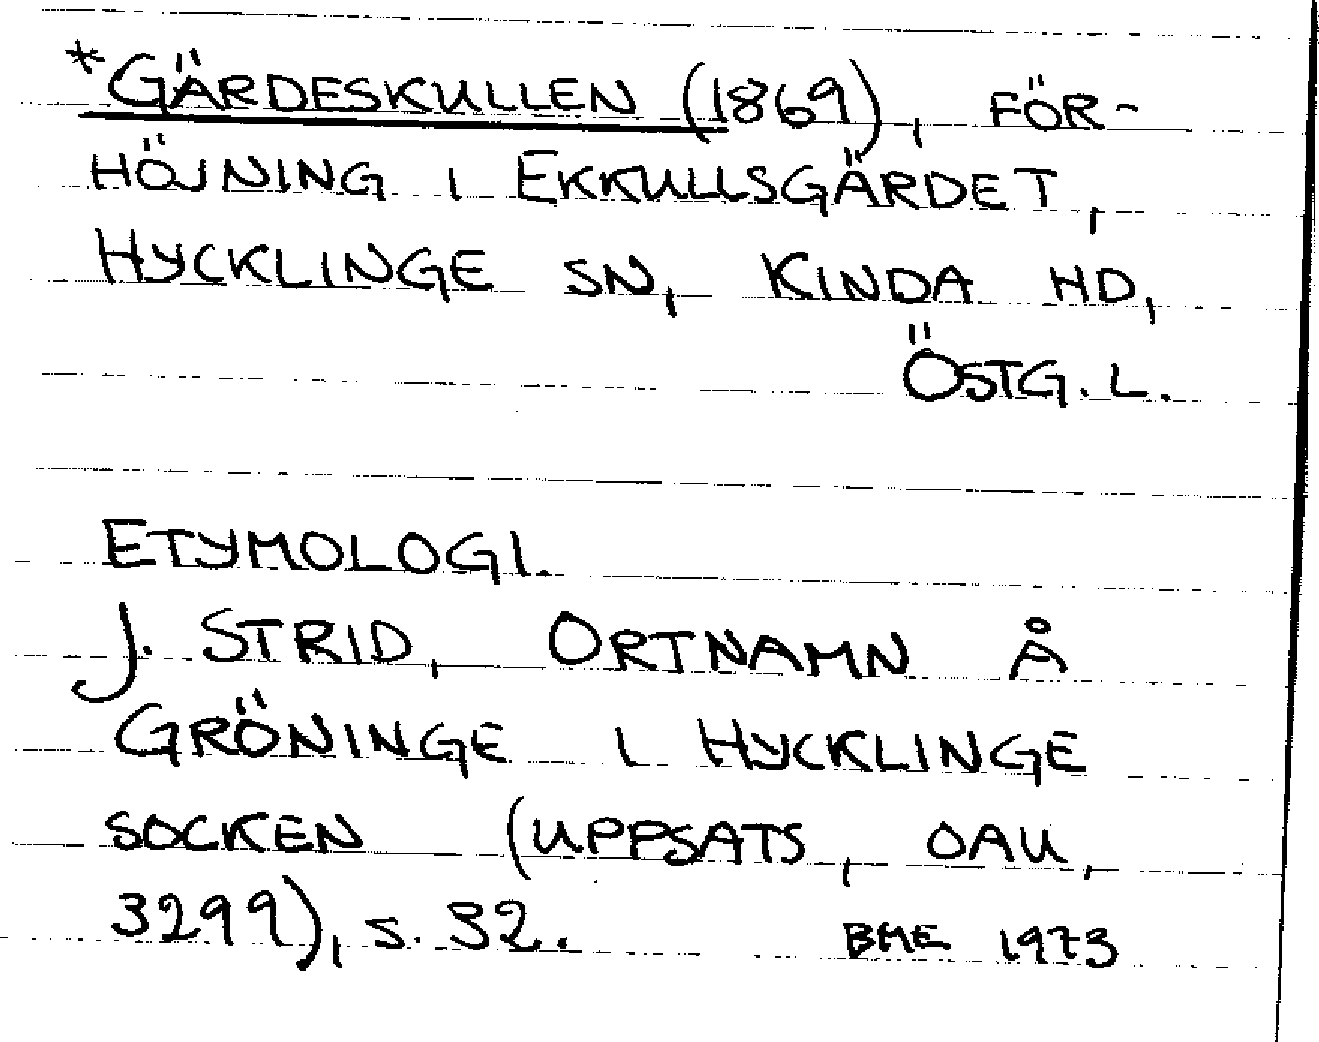 *GÄRDESKULLEN (1869), FÖR-
HÖJNING I EKKULLSGÄRDET,
HYCKLINGE SN, KINDA HD,
ÖSTG. L.
ETYMOLOGI.
J. STRID, ORTNAMN Å
GRÖNINGE I HYCKLINGE
SOCKEN (UPPSATS, OAU,
3299), S. 32.
BME 1973